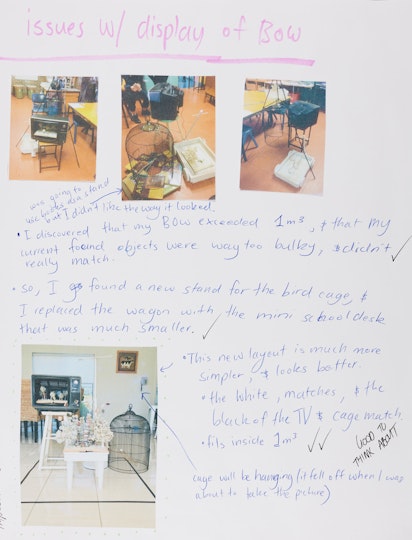 issues w/ display of BOW
was going to
use books as a stand
but I didn't like the way it looked.
• I discovered that my BOW exceeded 1m³, & that my
current found objects were way too bulky, & didn't
really match.
• so, I found a new stand for the bird cage, &
I replaced the wagon with the mini school desk
that was much smaller.
• This new layout is much more
simpler, & looks better.
• the white, matches, & the
black of the TV & cage match.
• fits inside 1m³
GOOD TO
THINK ABOUT
cage will be hanging (it fell off when I was
about to take the picture)